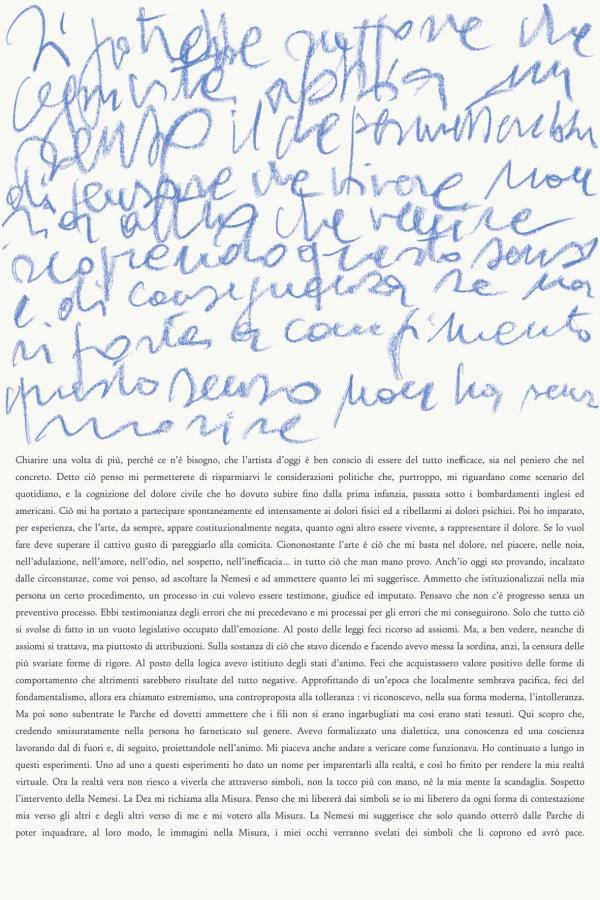 Si potrebbe supporre che
comunque abbia un
senso il
di pensare che vivere non
sia altro che venire
scoprendo questo senso
e di conseguenza se non
si porta a compimento
questo senso non ha senso
morire
Chiarire una volta di più, perché ce n'è bisogno, che l'artista d'oggi è ben conscio di essere del tutto inefficace, sia nel peniero che nel
concreto. Detto ciò penso mi permetterete di risparmiarvi le considerazioni politiche che, purtroppo, mi riguardano come scenario del
quotidiano, e la cognizione del dolore civile che ho dovuto subire fino dalla prima infanzia, passata sotto i bombardamenti inglesi ed
americani. Ciò mi ha portato a partecipare spontaneamente ed intensamente ai dolori fisici ed a ribellarmi ai dolori psichici. Poi ho imparato,
per esperienza, che l'arte, da sempre, appare costituzionalmente negata, quanto ogni altro essere vivente, a rappresentare il dolore. Se lo vuol
fare deve superare il cattivo gusto di pareggiarlo alla comicita. Ciononostante l'arte é ciò che mi basta nel dolore, nel piacere, nelle noia,
nell'adulazione, nell'amore, nell'odio, nel sospetto, nell'inefficacia... in tutto ciò che man mano provo. Anch'io oggi sto provando, incalzato
dalle circostanze, come voi penso, ad ascoltare la Nemesi e ad ammettere quanto lei mi suggerisce. Ammetto che istituzionalizzai nella mia
persona un certo procedimento, un processo in cui volevo essere testimone, giudice ed imputato. Pensavo che non c'é progresso senza un
preventivo processo. Ebbi testimonianza degli errori che mi precedevano e mi processai per gli errori che mi conseguirono. Solo che tutto ciò
si svolse di fatto in un vuoto legislativo occupato dall'emozione. Al posto delle leggi feci ricorso ad assiomi. Ma, a ben vedere, neanche di
assiomi si trattava, ma piuttosto di attribuzioni. Sulla sostanza di ciò che stavo dicendo e facendo avevo messa la sordina, anzi, la censura delle
più svariate forme di rigore. Al posto della logica avevo istituto degli stati d'animo. Feci che acquistassero valore positivo delle forme di
comportamento che altrimenti sarebbero risultate del tutto negative. Approfittando di un'epoca che localmente sembrava pacifica, feci del
fondamentalismo, allora era chiamato estremismo, una controproposta alla tolleranza : vi riconoscevo, nella sua forma moderna, l'intolleranza.
Ma poi sono subentrate le Parche ed dovetti ammettere che i fili non si erano ingarbugliati ma cosi erano stati tessuti. Qui scopro che,
credendo smisuratamente nella persona ho farneticato sul genere. Avevo formalizzato una dialettica, una conoscenza ed una coscienza
lavorando dal di fuori e, di seguito, proiettandole nell'animo. Mi piaceva anche andare a vericare come funzionava. Ho continuato a lungo in
questi esperimenti. Uno ad uno a questi esperimenti ho dato un nome per imparentarli alla realtà, e così ho finito per rendere la mia realtà
virtuale. Ora la realtà vera non riesco a viverla che attraverso simboli, non la tocco più con mano, né la mia mente la scandaglia. Sospetto
l'intervento della Nemesi. La Dea mi richiama alla Misura. Penso che mi libererà dai simboli se io mi libero da ogni forma di contestazione
mia verso gli altri e degli altri verso di me e mi votero alla Misura. La Nemesi mi suggerisce che solo quando otterrò dalle Parche di
poter inquadrare, al loro modo, le immagini nella Misura, i miei occhi verranno svelati dei simboli che li coprono ed avrò pace.